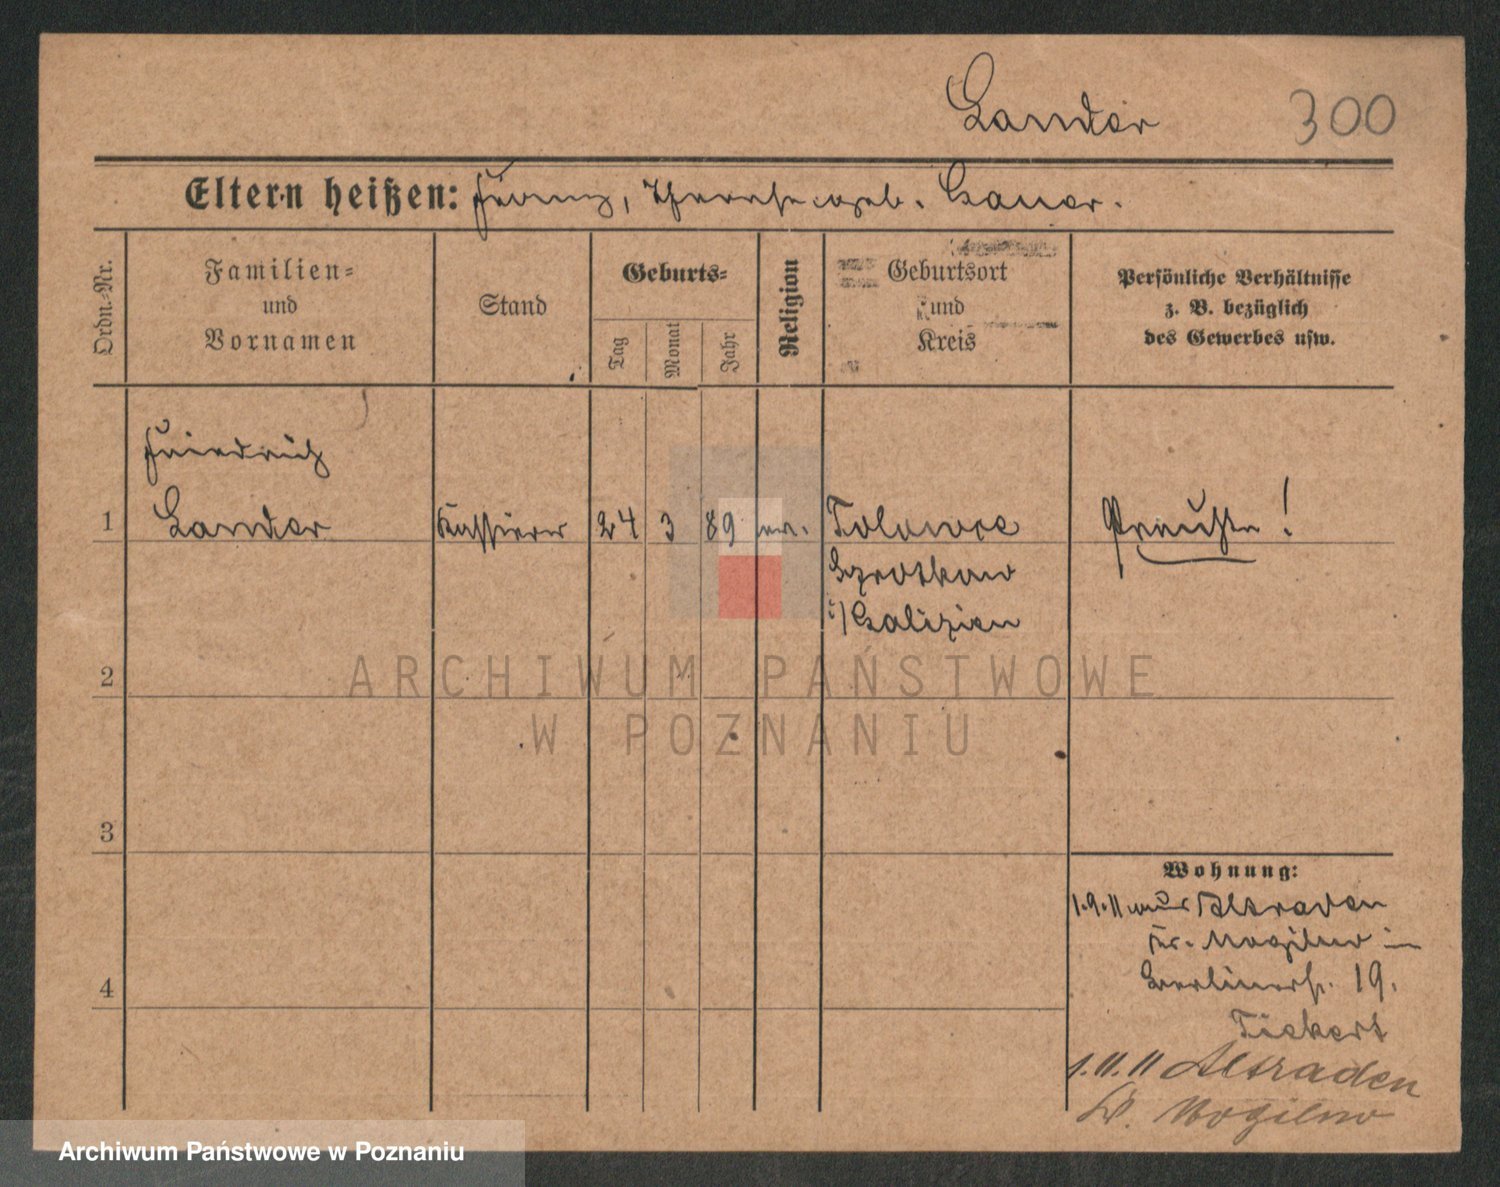 Lander 300
Eltern heißen: Franz, Therese geb. Bauer.
Ordn.-Nr.
Familien-
und
Vornamen
Stand
Geburts-
Tag
Monat
Jahr
Religion
Geburtsort
und
Kreis
Persönliche Verhältnisse
z. B. bezüglich
des Gewerbes usw.
Friedrich
1 Lander Kassierer 24 3 89 ev. Preuße!
i/Galizien
2
3
4
Wohnung:
1.9.11 aus Altraden
Kr. Mogilno in
Berlinerstr. 19.
1.11.11 Altraden
Kr. Mogilno
ARCHIWUM PAŃSTWOWE
W POZNANIU
Archiwum Państwowe w Poznaniu